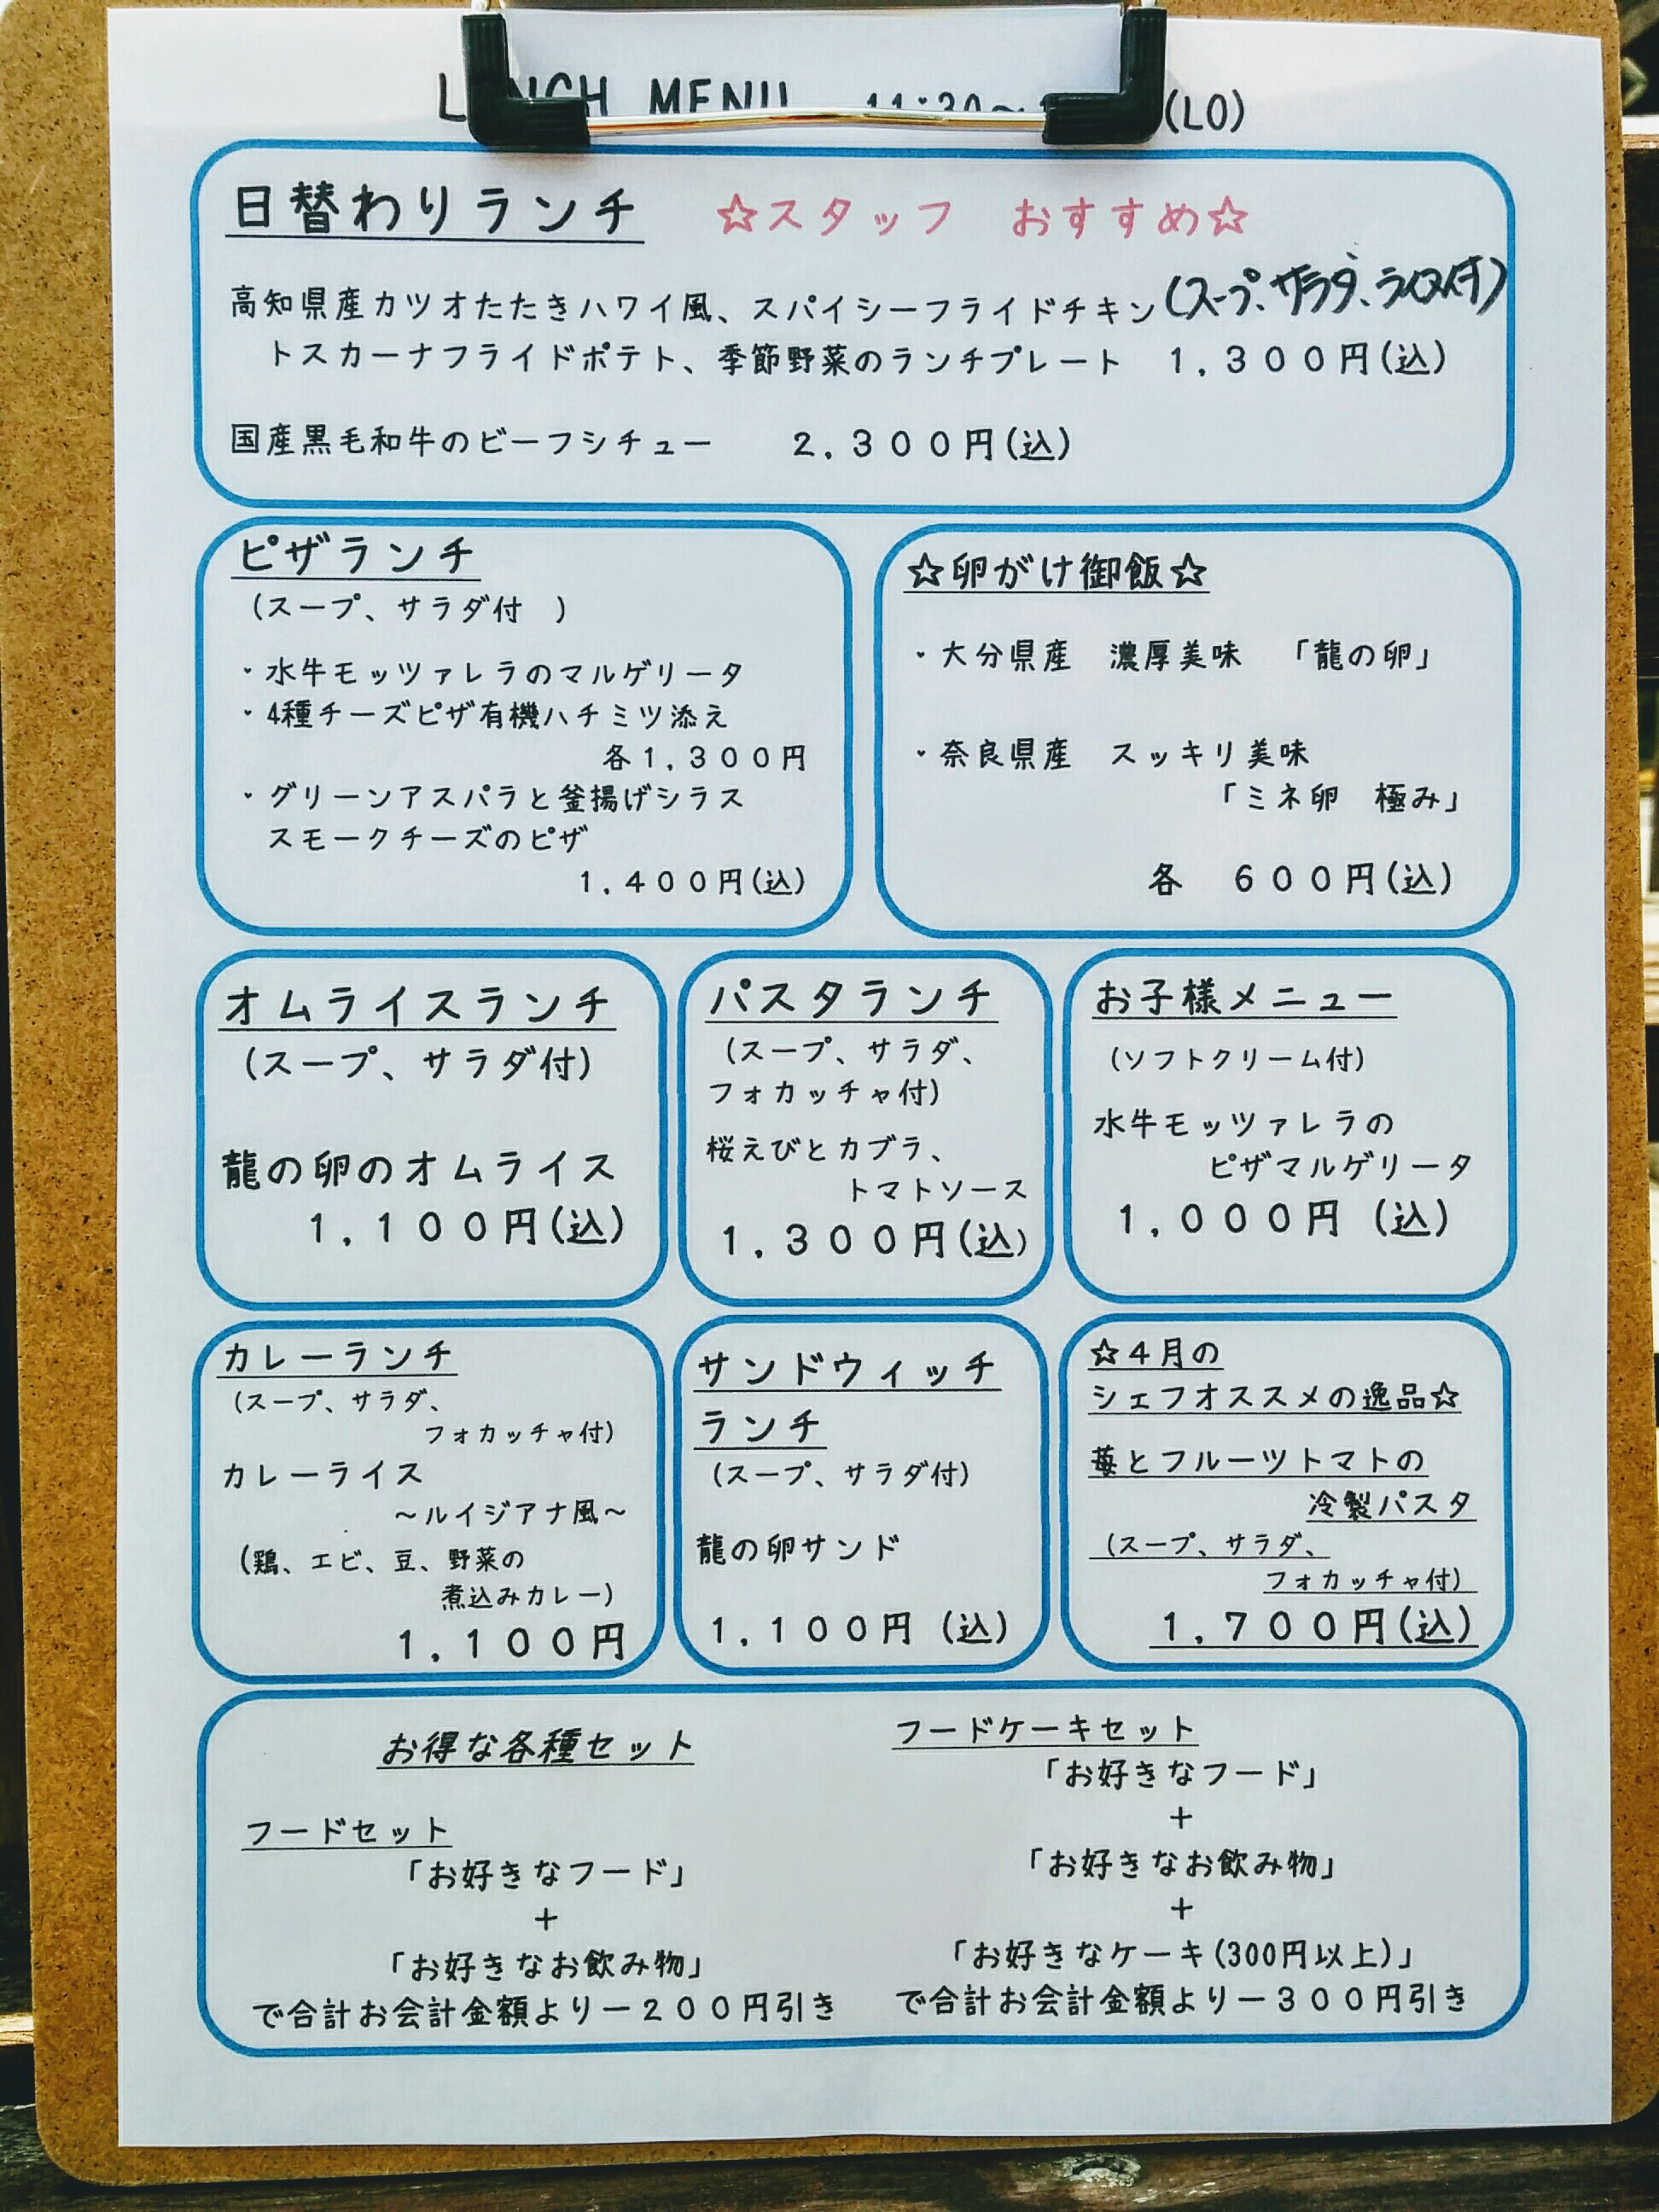 MENU 11:30～ (LO)
日替わりランチ ☆スタッフ おすすめ☆
高知県産カツオたたきハワイ風、スパイシーフライドチキン(スープ、サラダ、ライス付)
トスカーナフライドポテト、季節野菜のランチプレート 1,300円(込)
国産黒毛和牛のビーフシチュー 2,300円(込)
ピザランチ
(スープ、サラダ付 )
・水牛モッツァレラのマルゲリータ
・4種チーズピザ有機ハチミツ添え
各1,300円
・グリーンアスパラと釜揚げシラス
スモークチーズのピザ
1,400円(込)
☆卵がけ御飯☆
・大分県産 濃厚美味 「龍の卵」
・奈良県産 スッキリ美味
「ミネ卵 極み」
各 600円(込)
オムライスランチ
(スープ、サラダ付)
龍の卵のオムライス
1,100円(込)
パスタランチ
(スープ、サラダ、
フォカッチャ付)
桜えびとカブラ、
トマトソース
1,300円(込)
お子様メニュー
(ソフトクリーム付)
水牛モッツァレラの
ピザマルゲリータ
1,000円 (込)
カレーランチ
(スープ、サラダ、
フォカッチャ付)
カレーライス
～ルイジアナ風～
(鶏、エビ、豆、野菜の
煮込みカレー)
1,100円
サンドウィッチ
ランチ
(スープ、サラダ付)
龍の卵サンド
1,100円 (込)
☆4月の
シェフオススメの逸品☆
苺とフルーツトマトの
冷製パスタ
(スープ、サラダ、
フォカッチャ付)
1,700円(込)
お得な各種セット
フードセット
「お好きなフード」
+
「お好きなお飲み物」
で合計お会計金額より－200円引き
フードケーキセット
「お好きなフード」
+
「お好きなお飲み物」
+
「お好きなケーキ(300円以上)」
で合計お会計金額より－300円引き